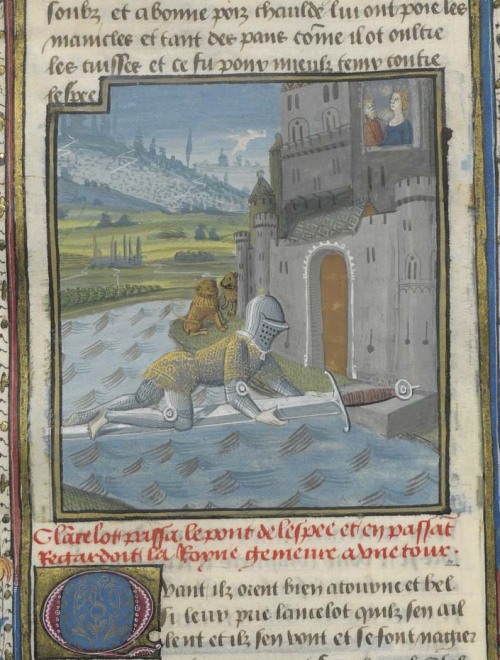 soubz et a bonne poix chaulde lui ont poie les
manicles et tant des pans cōme il ot oultre
les cuisses et ce fu pour mieulx tenir contre
lespee
Cy lācelot passa le pont de lespee et en passāt
Regardoit la Royne genieure a vne tour.
Quant ilz orent bien atourne et bel
Si leur prie lancelot quilz sen ail
lent et ilz sen vont et se font nagier